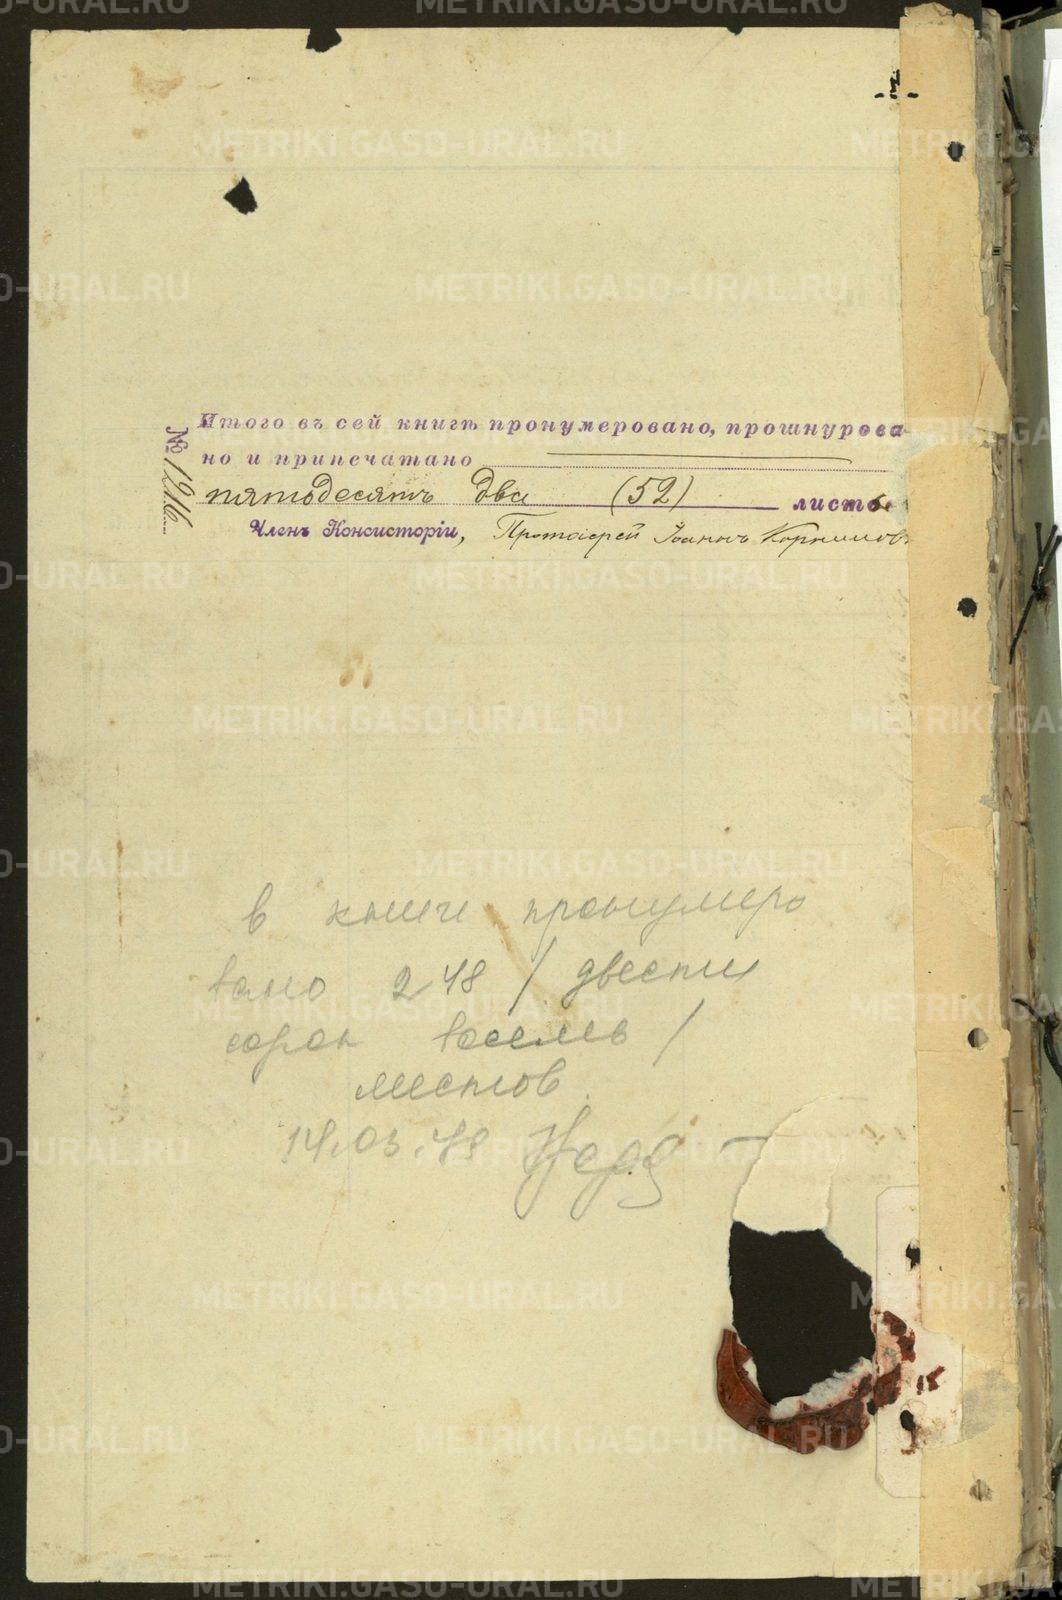 METRIKI.GASO-URAL.RU
Итого въ сей книгѣ пронумеровано, прошнурова-
но и припечатано
пятьдесятъ два (52) листъ
Членъ Консисторіи, Протоіерей Іоаннъ Корниловъ
№ 1216
в книге пронумеро
вано 248 / двести
сорок восемь /
листов
14.03.48